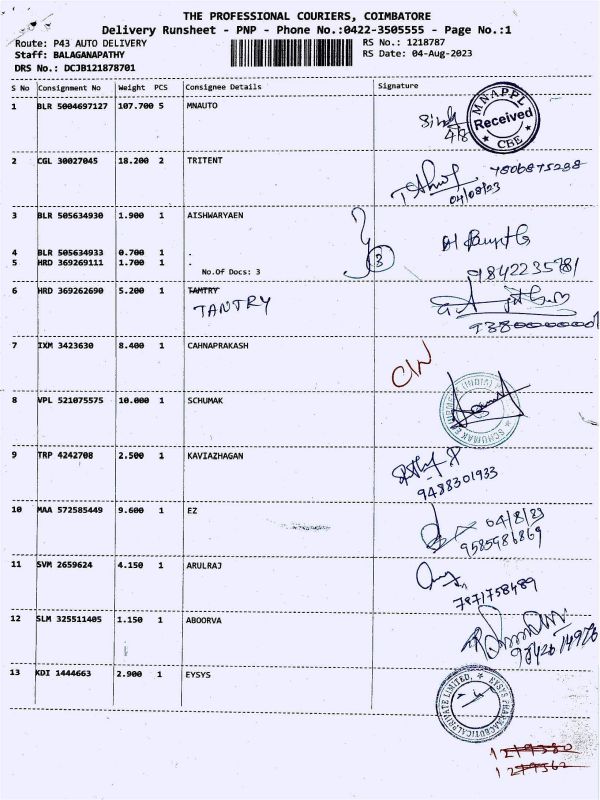 THE PROFESSIONAL COURIERS, COIMBATORE
Delivery Runsheet - PNP - Phone No.:0422-3505555 - Page No.:1
Route: P43 AUTO DELIVERY RS No.: 1218787
Staff: BALAGANAPATHY RS Date: 04-Aug-2023
DRS No.: DCJB121878701
S No Consignment No Weight PCS Consignee Details Signature
1 BLR 5004697127 107.700 5 MNAUTO
MNAPPL Received CBE
2 CGL 30027045 18.200 2 TRITENT
7806875288
04/08/23
3 BLR 505634930 1.900 1 AISHWARYAEN
4 BLR 505634933 0.700 1 .
5 HRD 369269111 1.700 1 .
No.Of Docs: 3
3
9842235781
6 HRD 369262690 5.200 1 TAMTRY
TANTRY
7 IXM 3423630 8.400 1 CAHNAPRAKASH
8 VPL 521075575 10.000 1 SCHUMAK
9 TRP 4242708 2.500 1 KAVIAZHAGAN
9488301933
10 MAA 572585449 9.600 1 EZ
04/8/23
9585986869
11 SVM 2659624 4.150 1 ARULRAJ
7871758489
12 SLM 325511405 1.150 1 ABOORVA
13 KDI 1444663 2.900 1 EYSYS
EYSYS PHARMACEUTICAL PRIVATE LIMITED
1219380
1279562